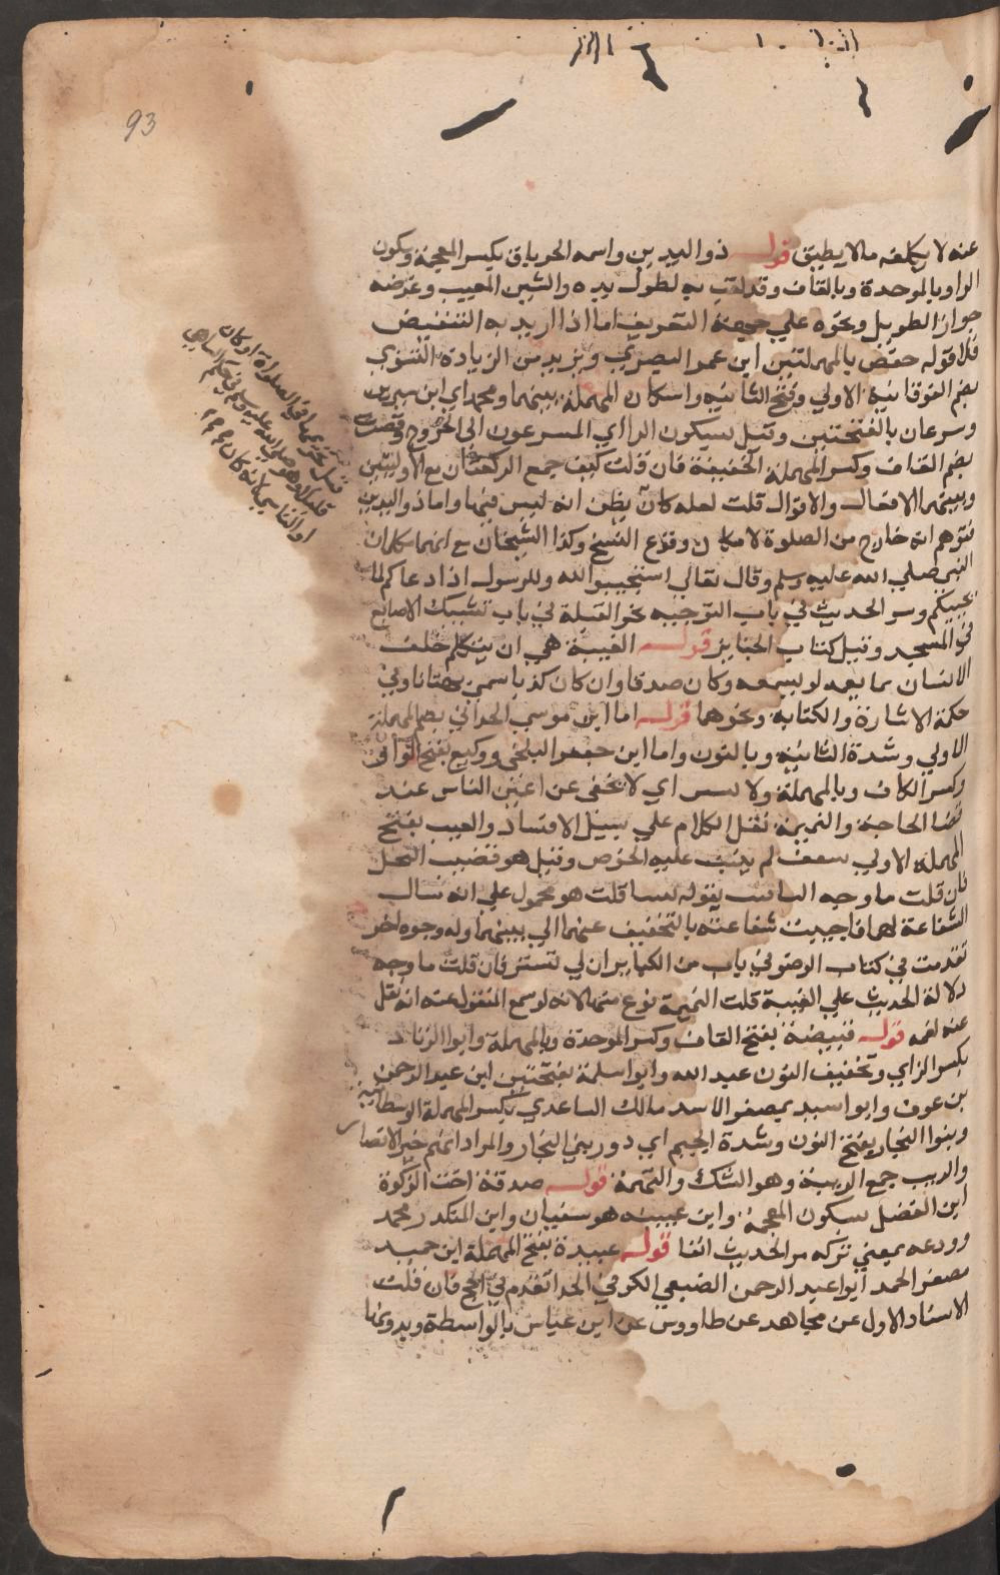 93
عنه لا يكلفه ما لا يطيق قوله ذو اليدين واسمه الخرباق بكسر المعجمة وسكون
الراء وبالموحدة وبالقاف وقد لقب به لطول يده والشين المعيب وغرضه
جواز الطويل ونحوه علي جهة التعريف اما اذا اريد به التنقيص
فلا قوله حفص بالمهملتين ابن عمر البصري ويزيد من الزيادة التستري
بضم الفوقانية الاولي وفتح الثانية واسكان المهملة بينهما ومحمد اي ابن سيرين
وسرعان بالفتحتين وقيل بسكون الراء اي المسرعون الى الخروج وقصرت
بضم القاف وكسر المهملة الخفيفة فان قلت كيف جمع الركعتان مع الاوليين
وبينهما الافعال والاقوال قلت لعله كان يظن انه ليس فيها واما ذو اليدين
فتوهم انه خارج من الصلوة لامكان وقوع النسخ وكذا الشيخان مع انهما كلمان
النبي صلي الله عليه وسلم وقال تعالي استجيبوا لله وللرسول اذا دعاكم لما
يحييكم ومر الحديث في باب التوجيه نحو القبلة في باب تشبيك الاصابع
في المسجد وقبل كتاب الجنايز قوله الغيبة هي ان يتكلم خلف
الانسان بما يغمه لو يسمعه وكان صدقا وان كان كذبا سمي بهتانا وفي
حكمة الاشارة والكتابة ونحوهما قوله اما ابن موسي الحداني بضم المهملة
الاولي وشدة الثانية وبالنون واما ابن جعفر البلخي ووكيع بفتح الواو
وكسر الكاف وبالمهملة ولا يستتر اي لا يخفى عن اعين الناس عند
قضا الحاجة والنميمة نقل الكلام علي سبيل الافساد والعيب بفتح
المهملة الاولي سعف لم ينبت عليه الخوص وقيل هو قضيب النخل
فان قلت ما وجه التانيث بقوله ييبسا قلت هو محمول علي انه سال
الشفاعة لهما فاجيبت شفاعته بالتخفيف عنهما الي يبسهما وله وجوه اخر
تقدمت في كتاب الوضو في باب من الكباير ان لي تستتر فان قلت ما وجه
دلالة الحديث علي الغيبة قلت النميمة نوع منها لانه لو سمع المنقول عنه انه نقل
عنه لغمه قوله قبيصة بفتح القاف وكسر الموحدة وبالمهملة وابوا الزناد
بكسر الزاي وتخفيف النون عبد الله وابوا سلمة بفتحتين ابن عبد الرحمن
بن عوف وابوا اسيد بمصغر الاسد مالك الساعدي بكسر المهملة الوسطانية
وبنوا النجار بفتح النون وشدة الجيم اي دور بني النجار والمراد انهم خير الانصار
والريب جمع الريبة وهو الشك والتهمة قوله صدقة اخت الزكوة
ابن الفضل بسكون المعجمة وابن عيينه هو سفيان وابن المنكدر محمد
وودعه بمعني تركه مر الحديث انفا قوله عبيدة بفتح المهملة ابن حميد
مصغر الحمد ابوا عبد الرحمن الضبعي الكوفي الحذا تقدم في الحج فان قلت
الاسناد الاول عن مجاهد عن طاووس عن ابن عباس بالواسطة وبدونها